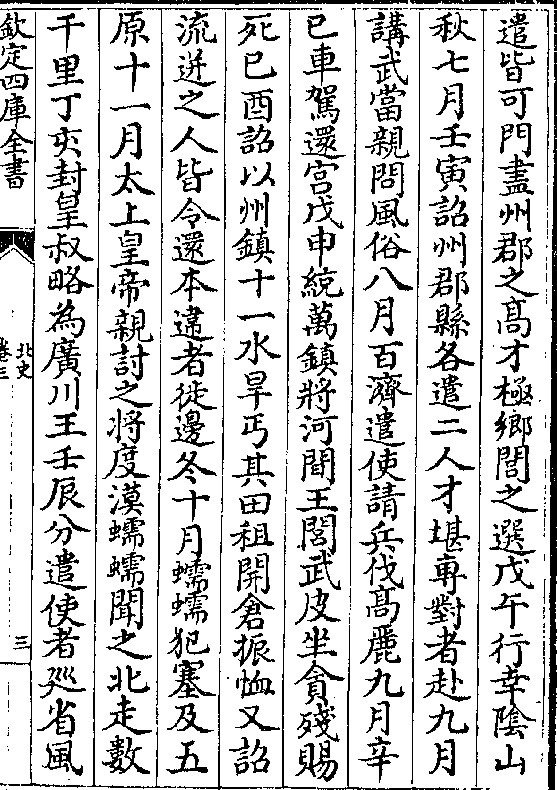 遣皆可門盡州郡之髙才極鄉閭之選戊午行幸隂山
秋七月壬寅詔州郡縣各遣二人才堪専對者赴九月
講武當親問風俗八月百濟遣使請兵伐髙麗九月辛
巳車駕還宫戊申統萬鎮將河間王閭武皮坐貪殘賜
死已酉詔以州鎮十一水旱丐其田租開倉振恤又詔
流迸之人皆令還本違者徙邊冬十月蠕蠕犯塞及五
原十一月太上皇帝親討之將度漠蠕蠕聞之北走數
千里丁亥封皇叔略為廣川王壬辰分遣使者廵省風
欽定四庫全書
北史
卷三
三